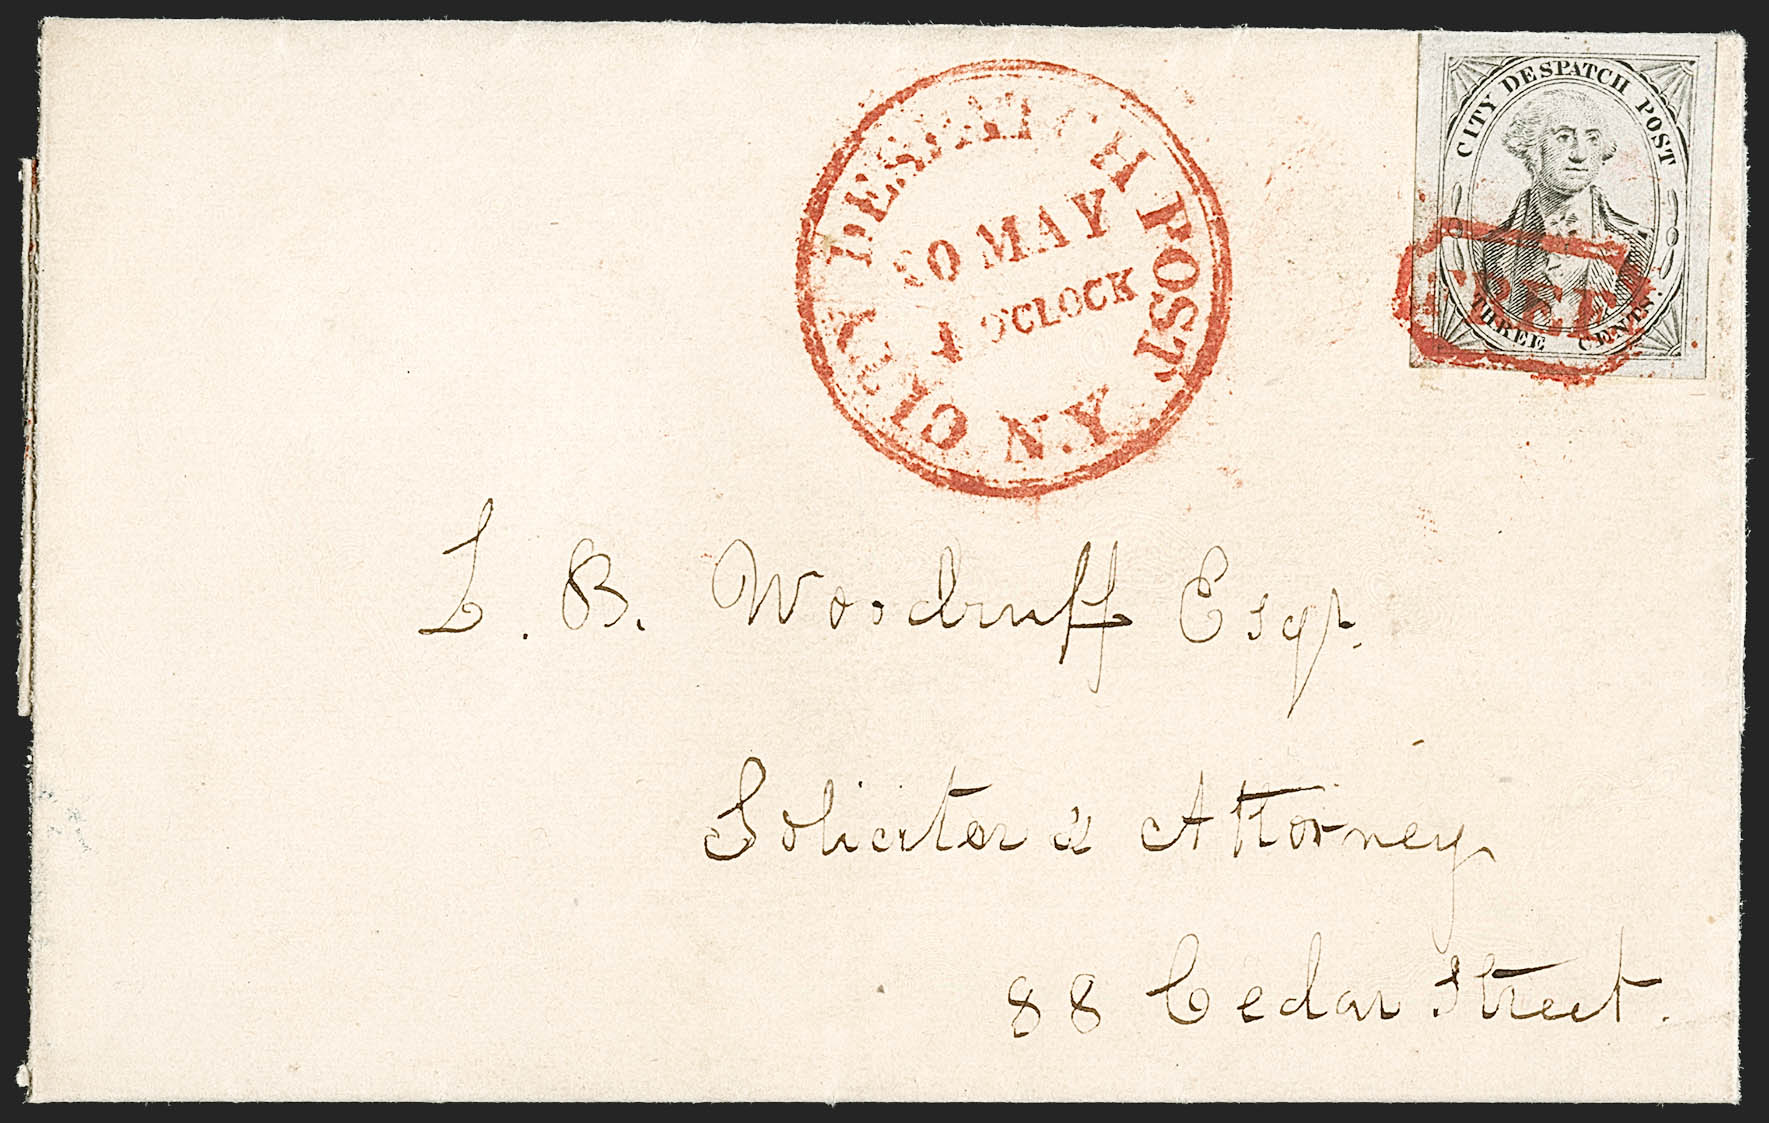 CITY DESPATCH POST
THREE CENTS.
FREE
CITY DESPATCH POST
N.Y
30 MAY
4 O'CLOCK
L. B. Woodruff Esqr.
Solicitor & Attorney
88 Cedar Street.